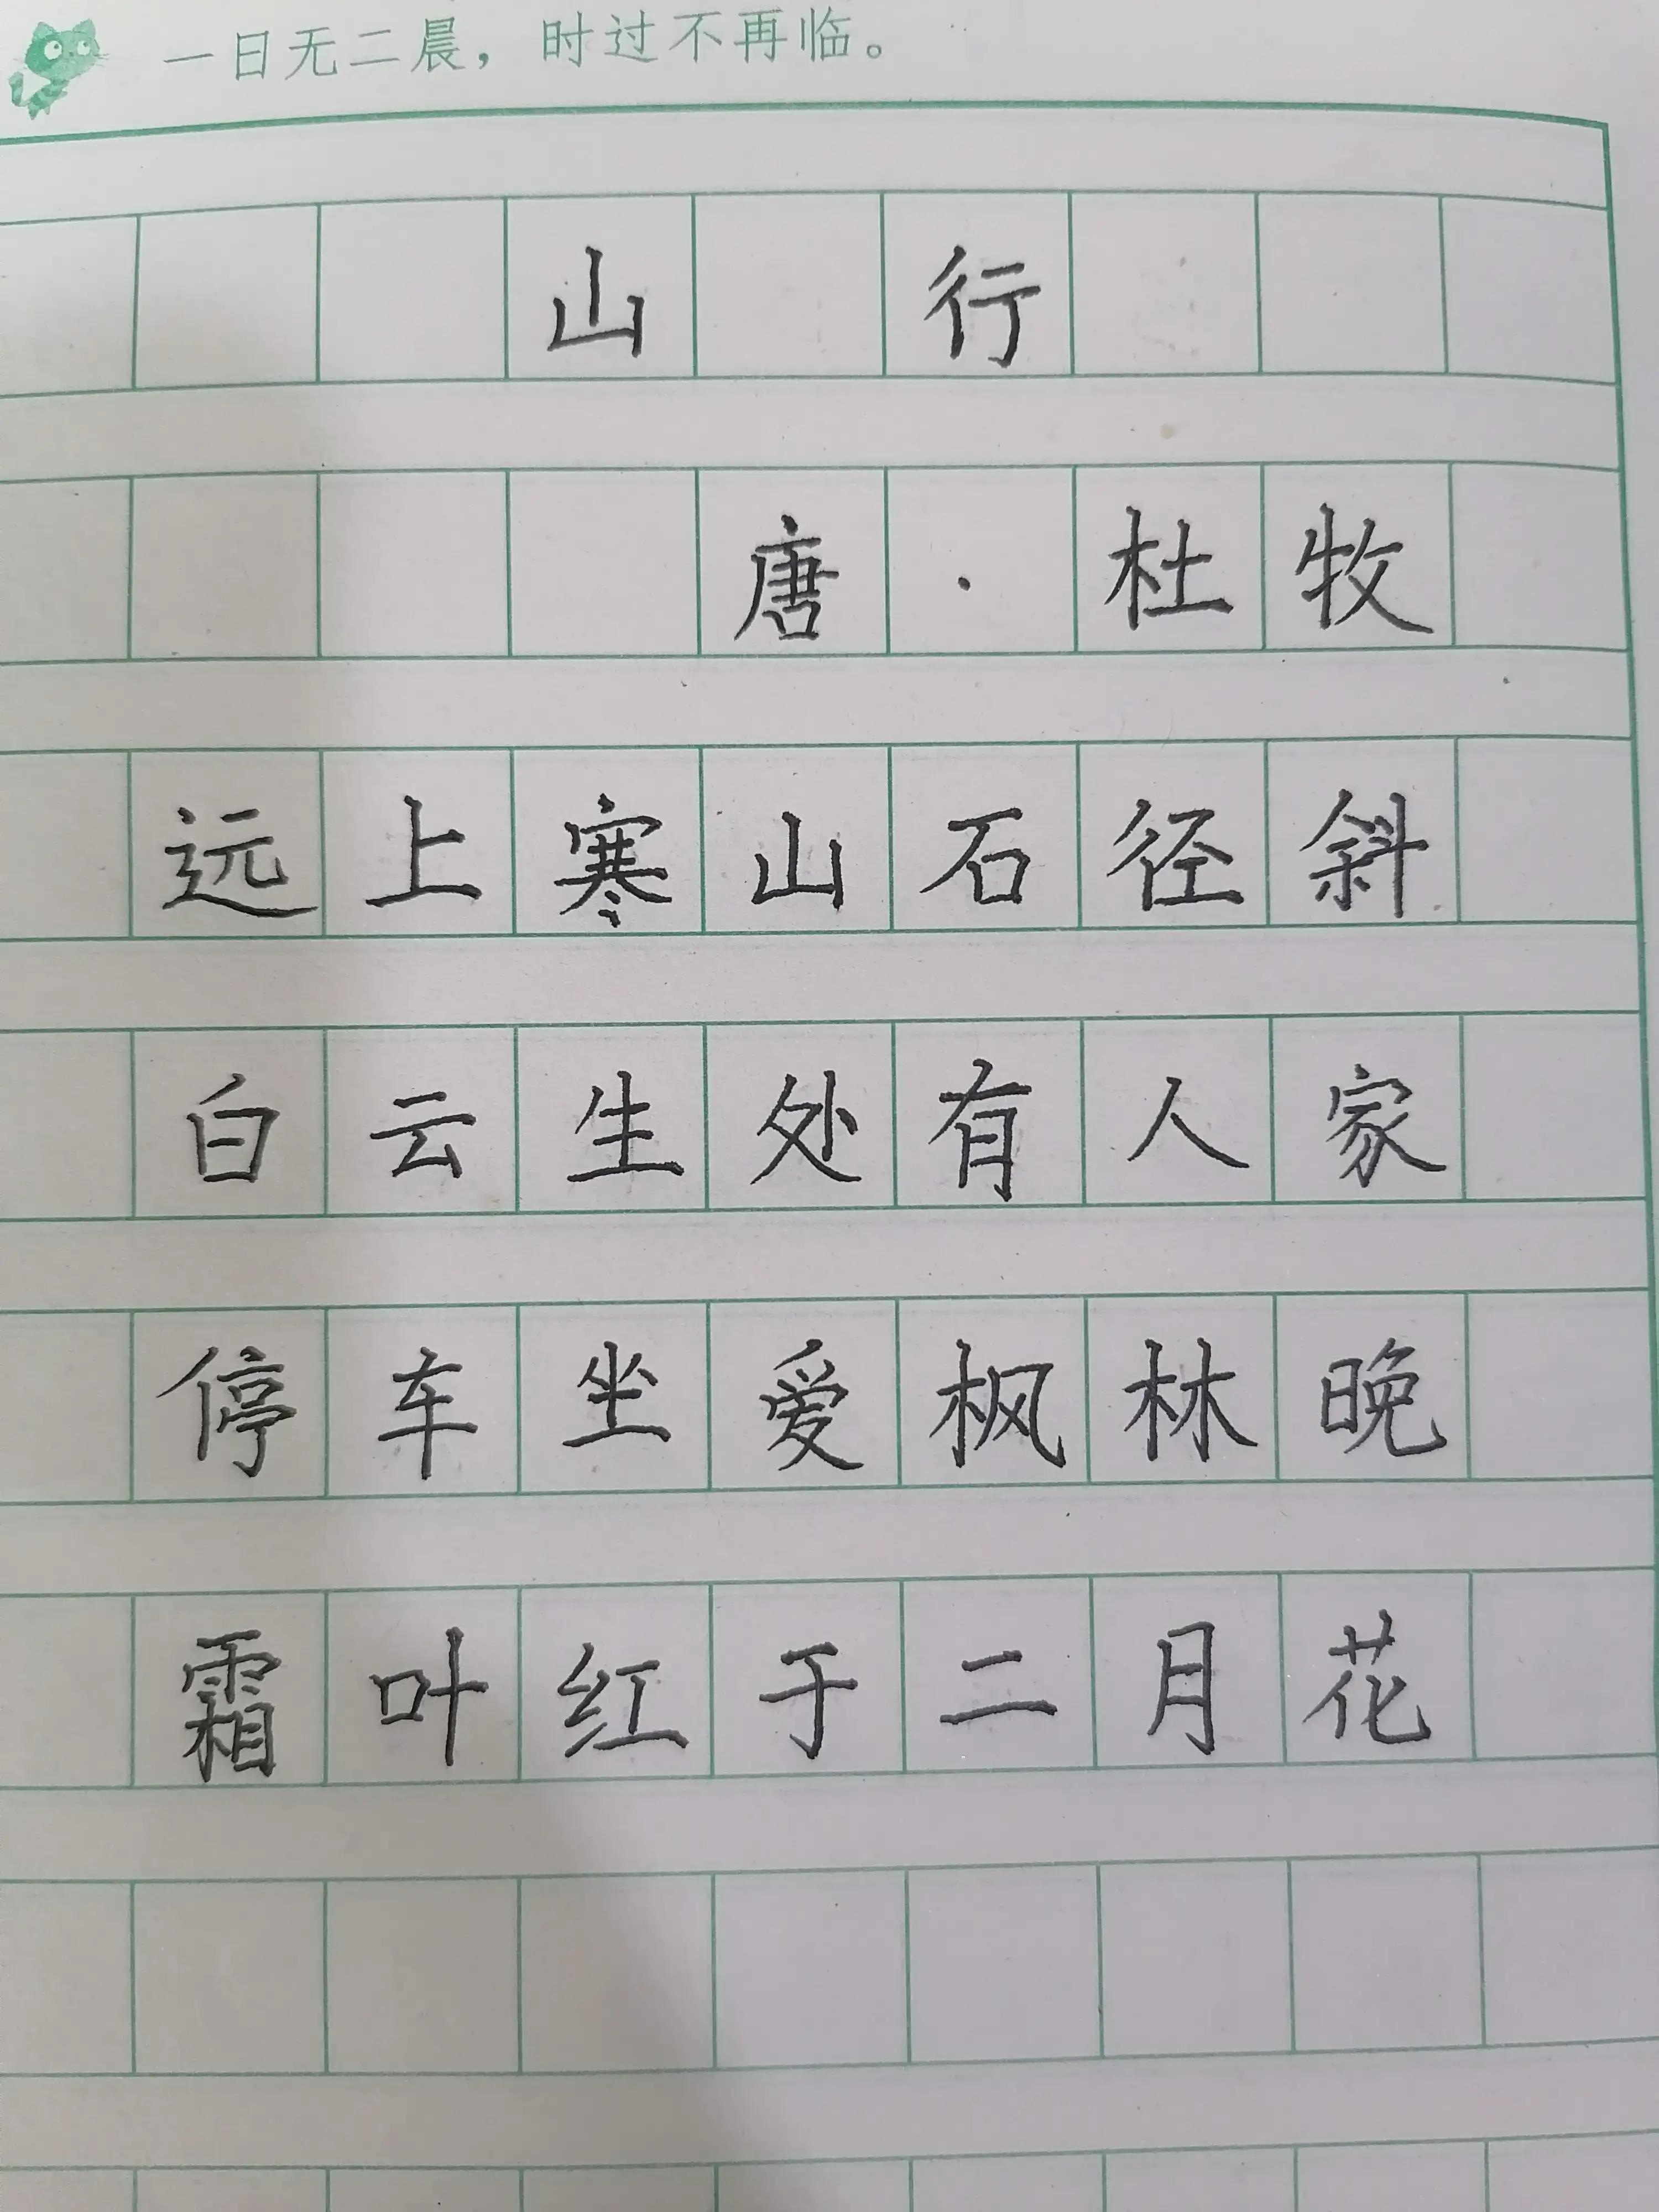 一日无二晨，时过不再临。
山行
唐·杜牧
远上寒山石径斜
白云生处有人家
停车坐爱枫林晚
霜叶红于二月花